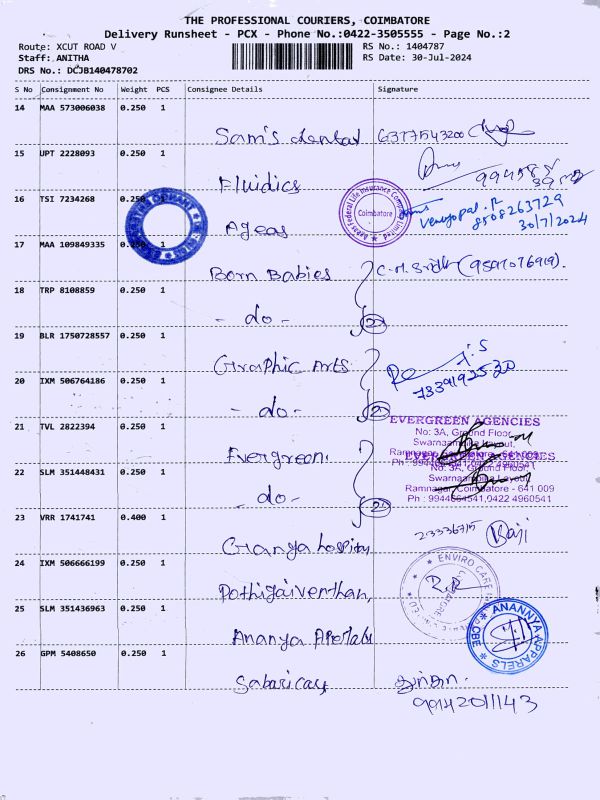 THE PROFESSIONAL COURIERS, COIMBATORE
Delivery Runsheet - PCX - Phone No.:0422-3505555 - Page No.:2
Route: XCUT ROAD V
RS No.: 1404787
Staff: ANITHA
RS Date: 30-Jul-2024
DRS No.: DCJB140478702
S No Consignment No Weight PCS Consignee Details Signature
14 MAA 573006038 0.250 1
Sam's dental 6377543200
15 UPT 2228093 0.250 1
Fluidics
16 TSI 7234268 0.250 1
Ageas Coimbatore Venugopal.P
8508263729
30/7/2024
17 MAA 109849335 0.250 1
Born Babies C.M. (9597076919).
18 TRP 8108859 0.250 1
- do - 2
19 BLR 1750728557 0.250 1
Graphic Arts
20 IXM 506764186 0.250 1
- do - 2
21 TVL 2822394 0.250 1
EVERGREEN AGENCIES
No: 3A, Ground Floor,
Swarnaambika Layout,
Evergreen.
EVERGREEN AGENCIES
22 SLM 351448431 0.250 1
No: 3A, Ground Floor,
Swarnaambika Layout,
Ramnagar, Coimbatore - 641 009
- do - 2
Ph : 9944664541,0422 4960541
23 VRR 1741741 0.400 1
23336715 Baji
Granya hospital
24 IXM 506666199 0.250 1
ENVIRO CARE
Pothigaiventhan,
R.R
25 SLM 351436963 0.250 1
ANANNYA APPARELS
CBE
Ananya
26 GPM 5408650 0.250 1